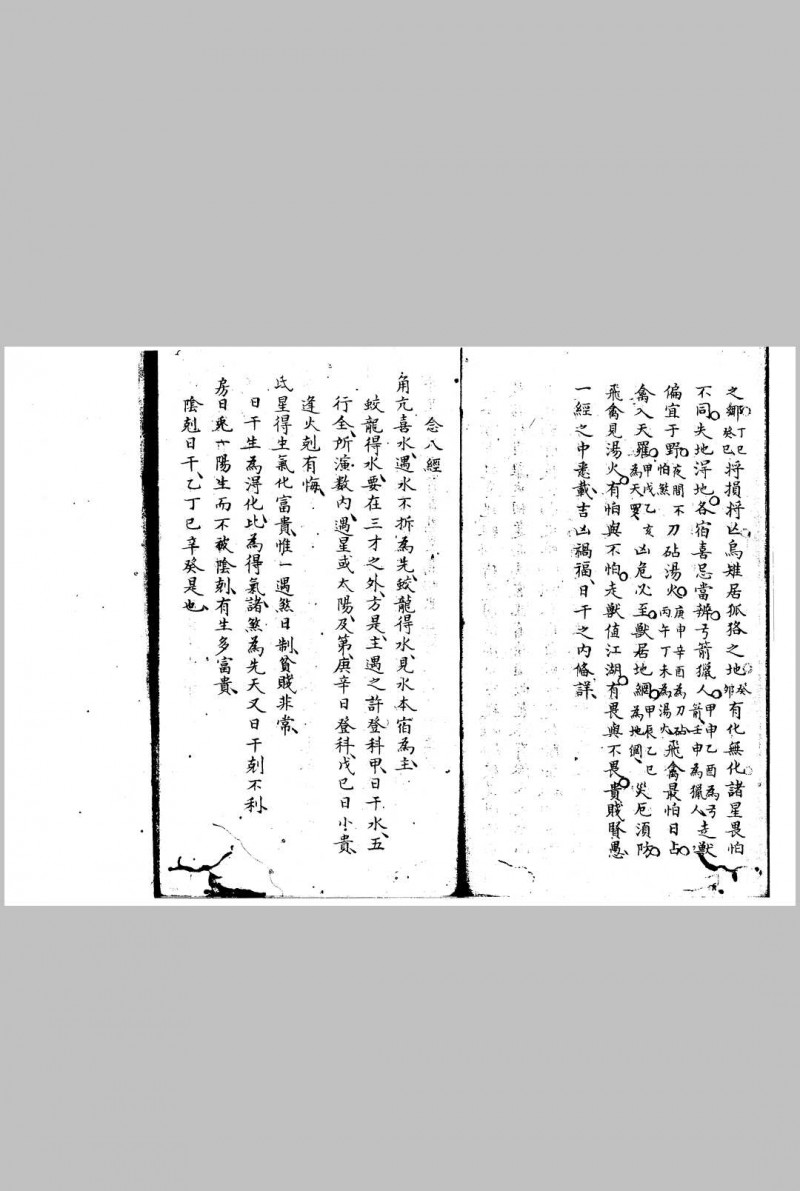 之鄉丁巳癸巳將損將凶烏雉居孤臵之地癸卯有化無化諸星畏怕
不同失地得地各宿喜忌當辨弓箭獵人甲申乙酉為弓箭壬申為獵人走獸
偏宜于野夜間不怕煞刀砧湯火庚申辛酉為刀砧丙午丁未為湯火飛禽最怕日占
禽入天羅甲戌乙亥為天罗凶危必至獸居地網甲辰乙巳為地網災厄須防
飛禽見湯火有怕與不怕走獸值江湖有畏與不畏貴賤賢愚
一經之中意載吉凶禍福日干之內條詳
念八經
角亢喜水遇水不拆為先蛟龍得水見水本宿為主
蛟龍得水要在三才之外方是主遇之許登科甲日干水五
行全所演数内遇星或太陽及第庚辛日登科戊巳日小貴
逢火剋有悔
氐星得生氣化富貴惟一遇煞日制貧賤非常
日干生為得化比為得氣諸煞為先天又日干剋不利
房日兎六陽生而不被陰剋有生多富貴
陰剋日干乙丁巳辛癸是也